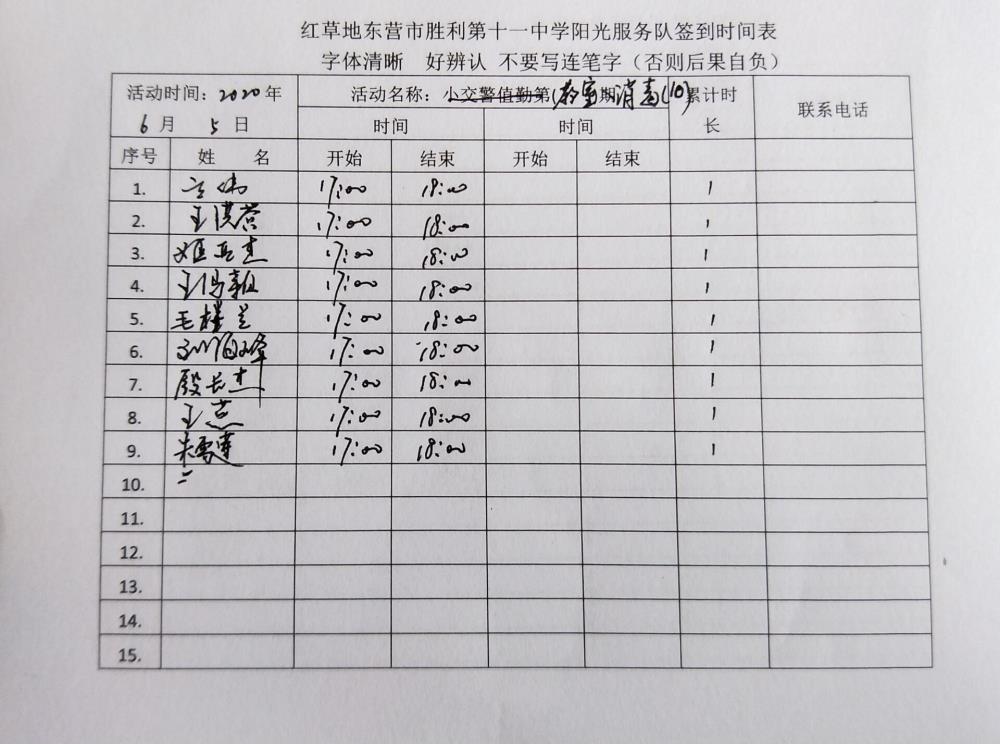 红草地东营市胜利第十一中学阳光服务队签到时间表
字体清晰 好辨认 不要写连笔字（否则后果自负）
活动时间：2020年 活动名称：小交警值勤第（教室期消毒(10) 累计时长 联系电话
6月 5日 时间 时间
序号 姓 名 开始 结束 开始 结束
1. 17:00 18:00 1
2. 王洪营 17:00 18:00 1
3. 17:00 18:00 1
4. 17:00 18:00 1
5. 毛桂兰 17:00 18:00 1
6. 17:00 18:00 1
7. 殷长杰 17:00 18:00 1
8. 王燕 17:00 18:00 1
9. 朱雪莲 17:00 18:00 1
10.
11.
12.
13.
14.
15.